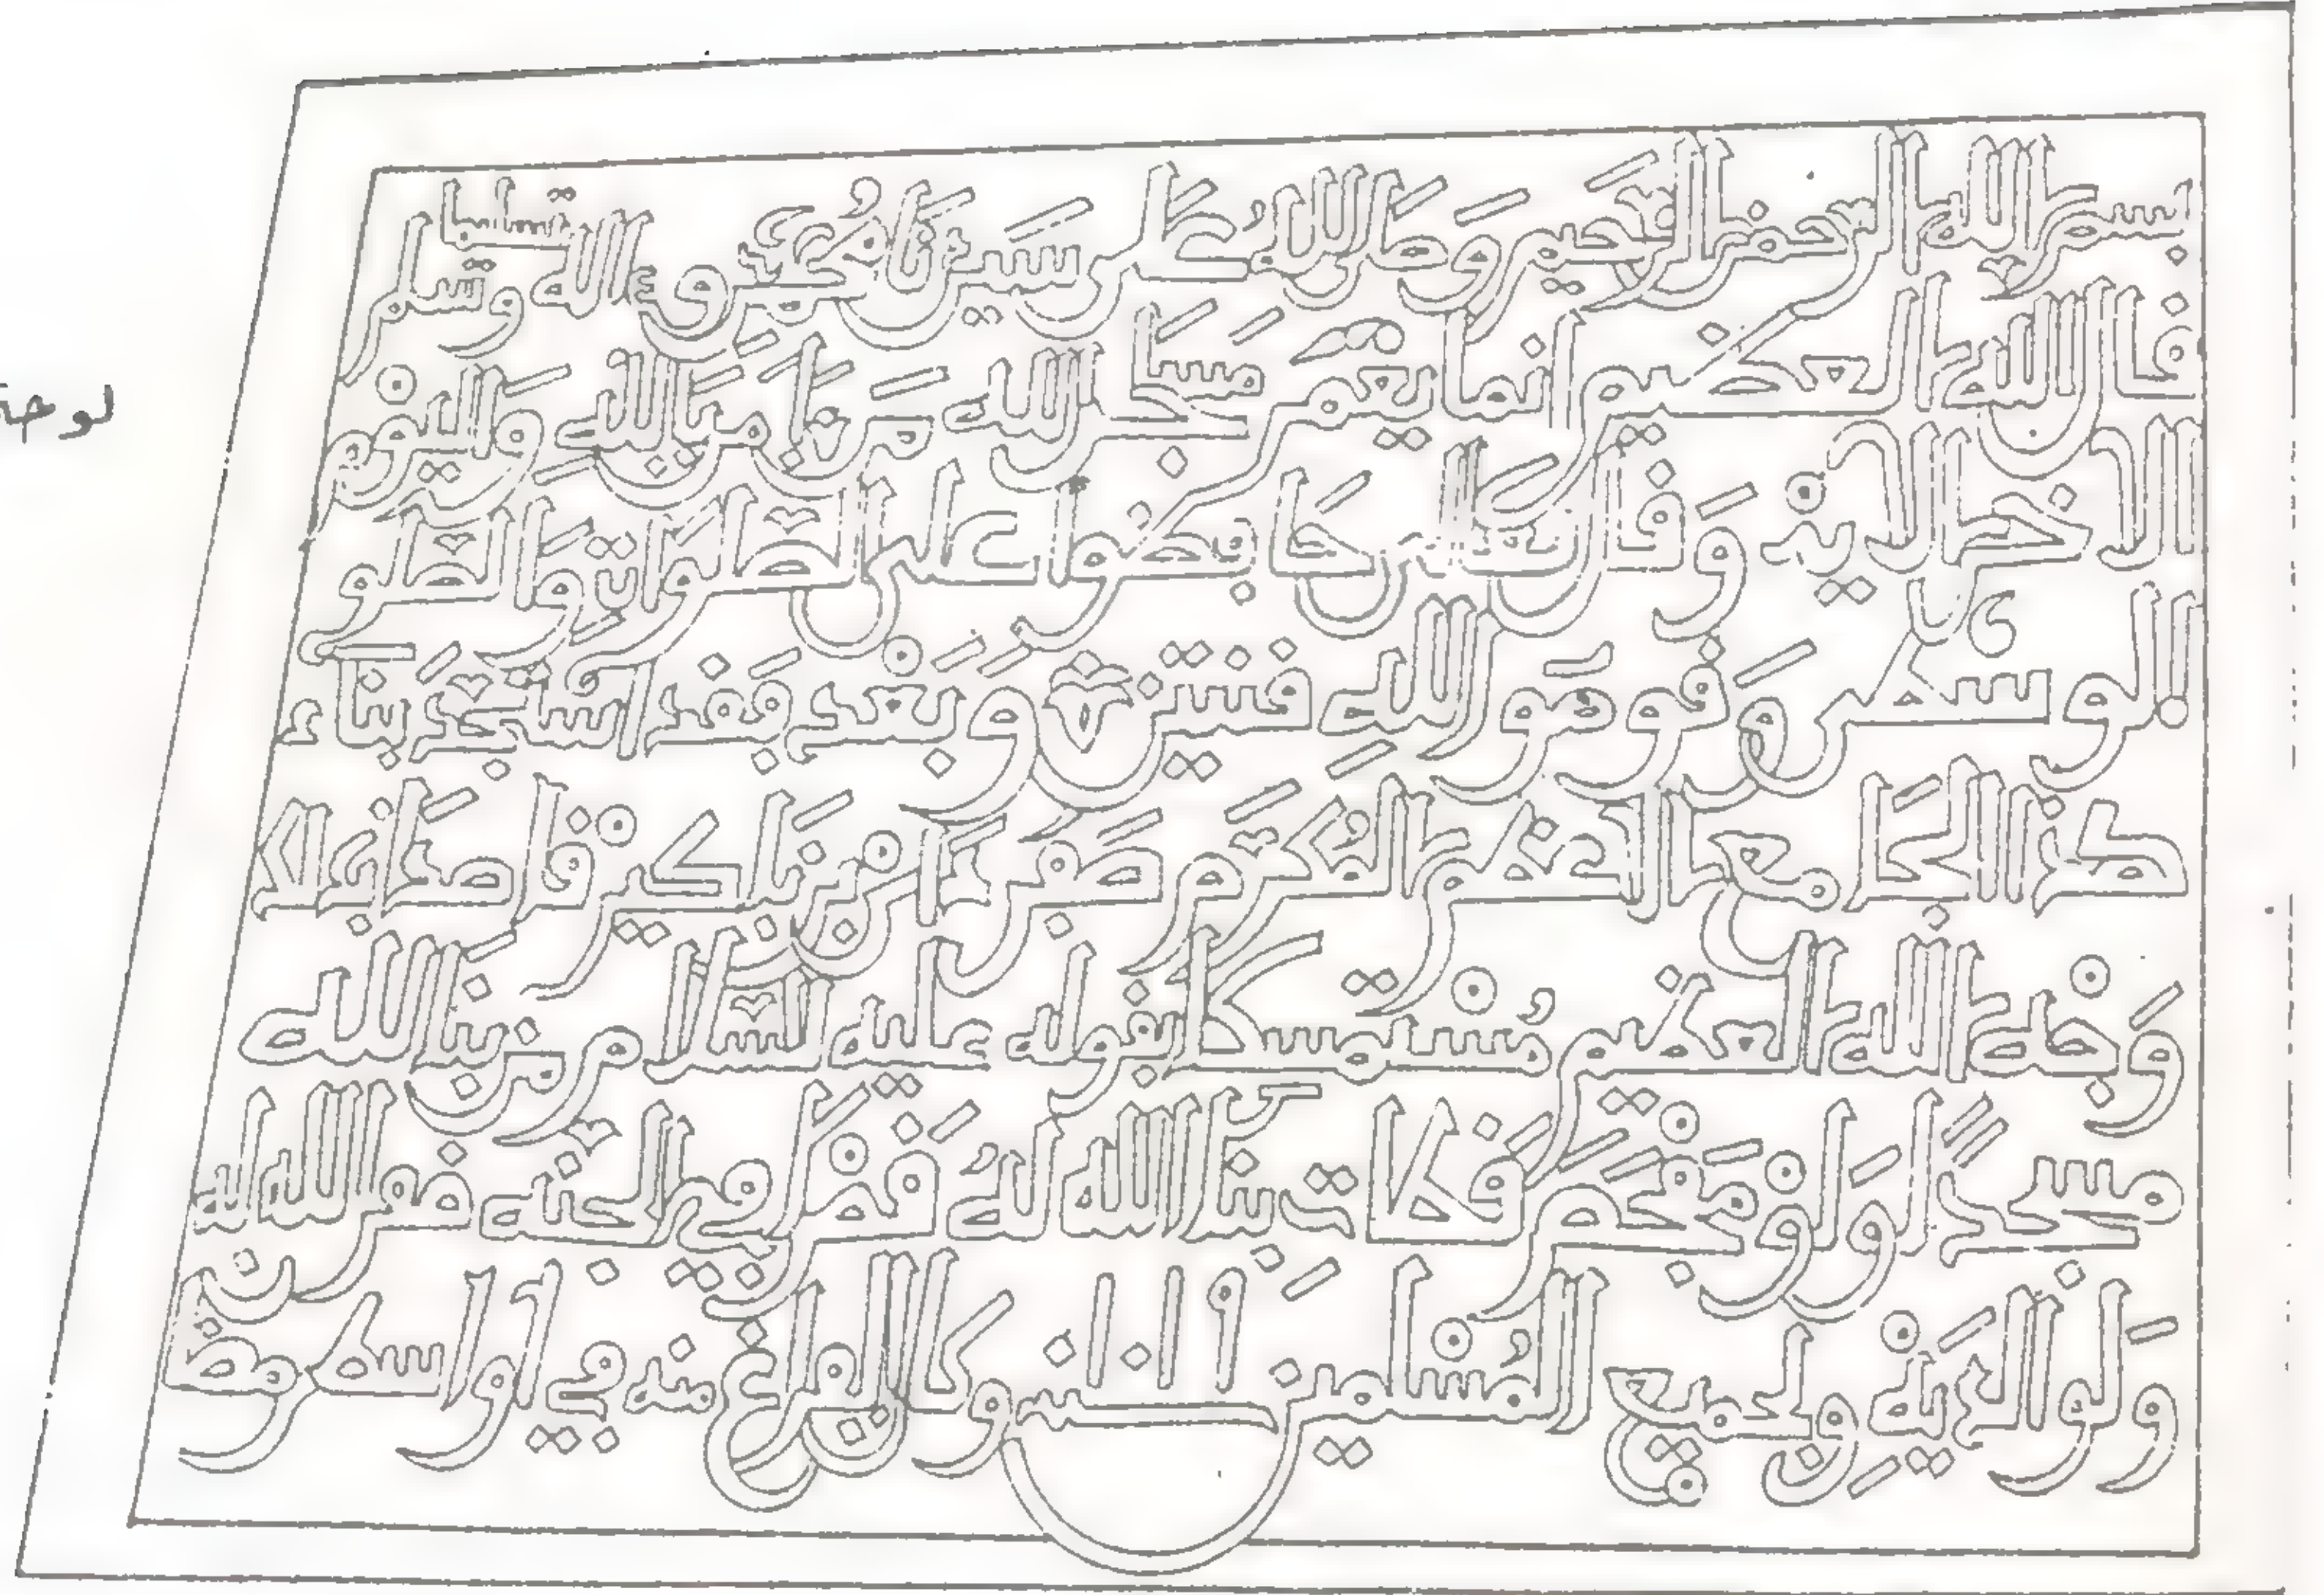 لوحة
بسم الله الرحمن الرحيم وَصلى اللهُ عَلى سَيدنَا مُحمد وءاله وسلم تسليما
قال الله العظيم انما يَعمر مَسَاجد الله مَن ءَامن بَالله وَاليوْم
الاخر الايةْ وَقال تعالى حَافظوا على الصّلوَات وَالصّلو
الوسطى وَقوموا للهِ قنتين وَبَعْد فَقد بنَاء
هذا الجَامع الاعظم المُكَرّم صَفَر بْن قاصدَا بذلك
وَجْه الله العظيم مُسْتمسكا بقوله عليه السّلام من بنَا لله
مسجداً وَلوْ مَفْحَص قَطات بنا الله لهُ قَصْرًا في الجنّه غفر الله له
وَلوالديْهِ ولجميع المُسْلمين سنه وكان الفراغ منه في اواسط رمضان